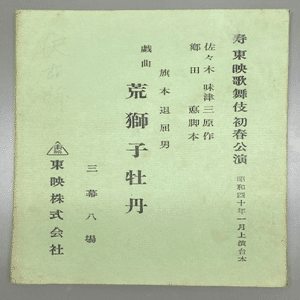 寿 東映歌舞伎 初春公演 昭和四十年一月上演台本
佐々木 味津三 原作
郷田 悳 脚本
旗本退屈男
戯曲 荒獅子牡丹
三幕八場
東映株式会社